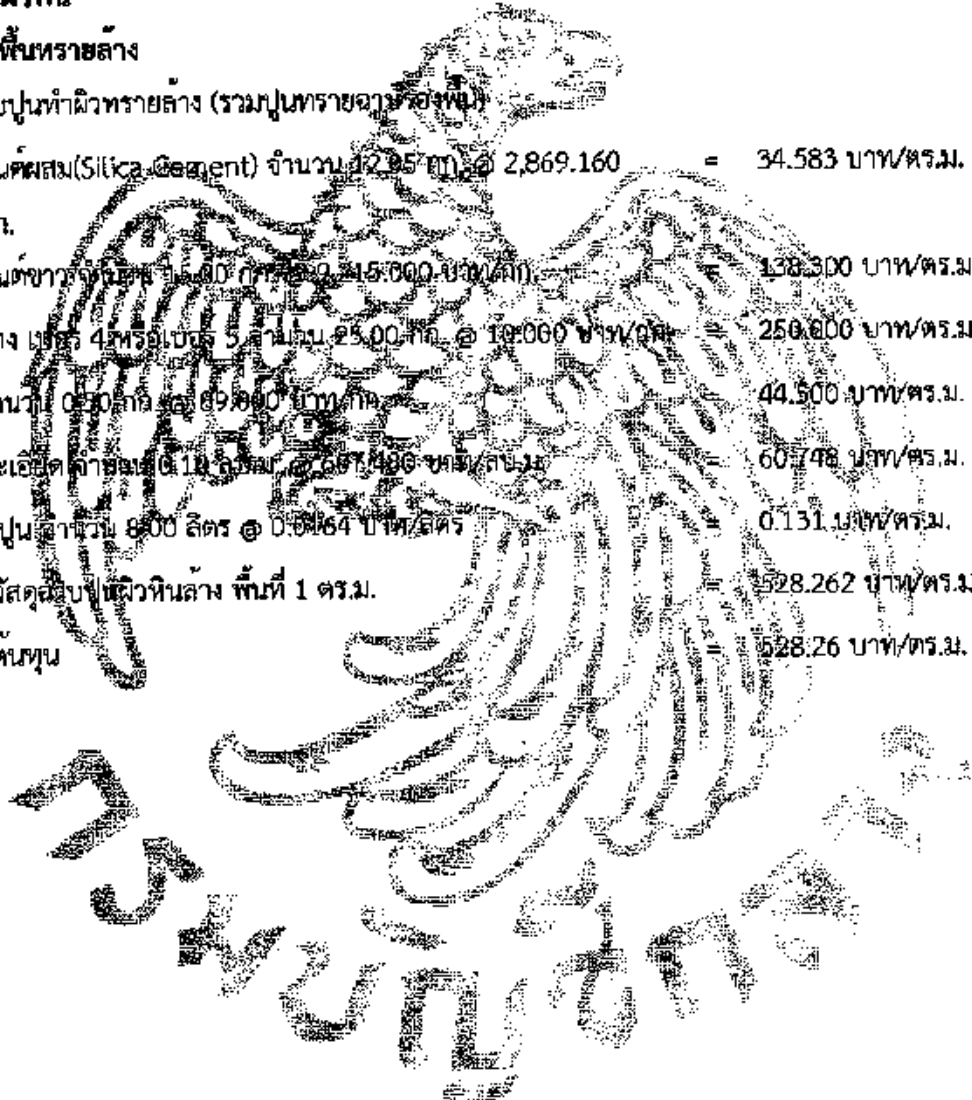 พื้นทรายล้าง
ปูนทำผิวทรายล้าง (รวมปูนทรายฉาบรองพื้น)
นต์ผสม(Silica Cement) จำนวน 12.05 กก. @ 2,869.160 = 34.583 บาท/ตร.ม.
ก.
นต์ขาว จำนวน กก. @ 9. บาท/กก. = 138.300 บาท/ตร.ม
าง เบอร์ 4 หรือเบอร์ 5 จำนวน 25.00 กก. @ 10.000 บาท/กก. = 250.000 บาท/ตร.ม
จำนวน 0.50 กก. @ 89.000 บาท/กก. = 44.500 บาท/ตร.ม.
ะเอียด จำนวน 0.10 ลบ.ม. @ 607.480 บาท/ลบ.ม. = 60.748 บาท/ตร.ม.
ปูน จำนวน 8.00 ลิตร @ 0.0164 บาท/ลิตร = 0.131 บาท/ตร.ม.
วัสดุฉาบปูนผิวหินล้าง พื้นที่ 1 ตร.ม. = 528.262 บาท/ตร.ม
ต้นทุน = 528.26 บาท/ตร.ม.
กรมบัญชีกลาง